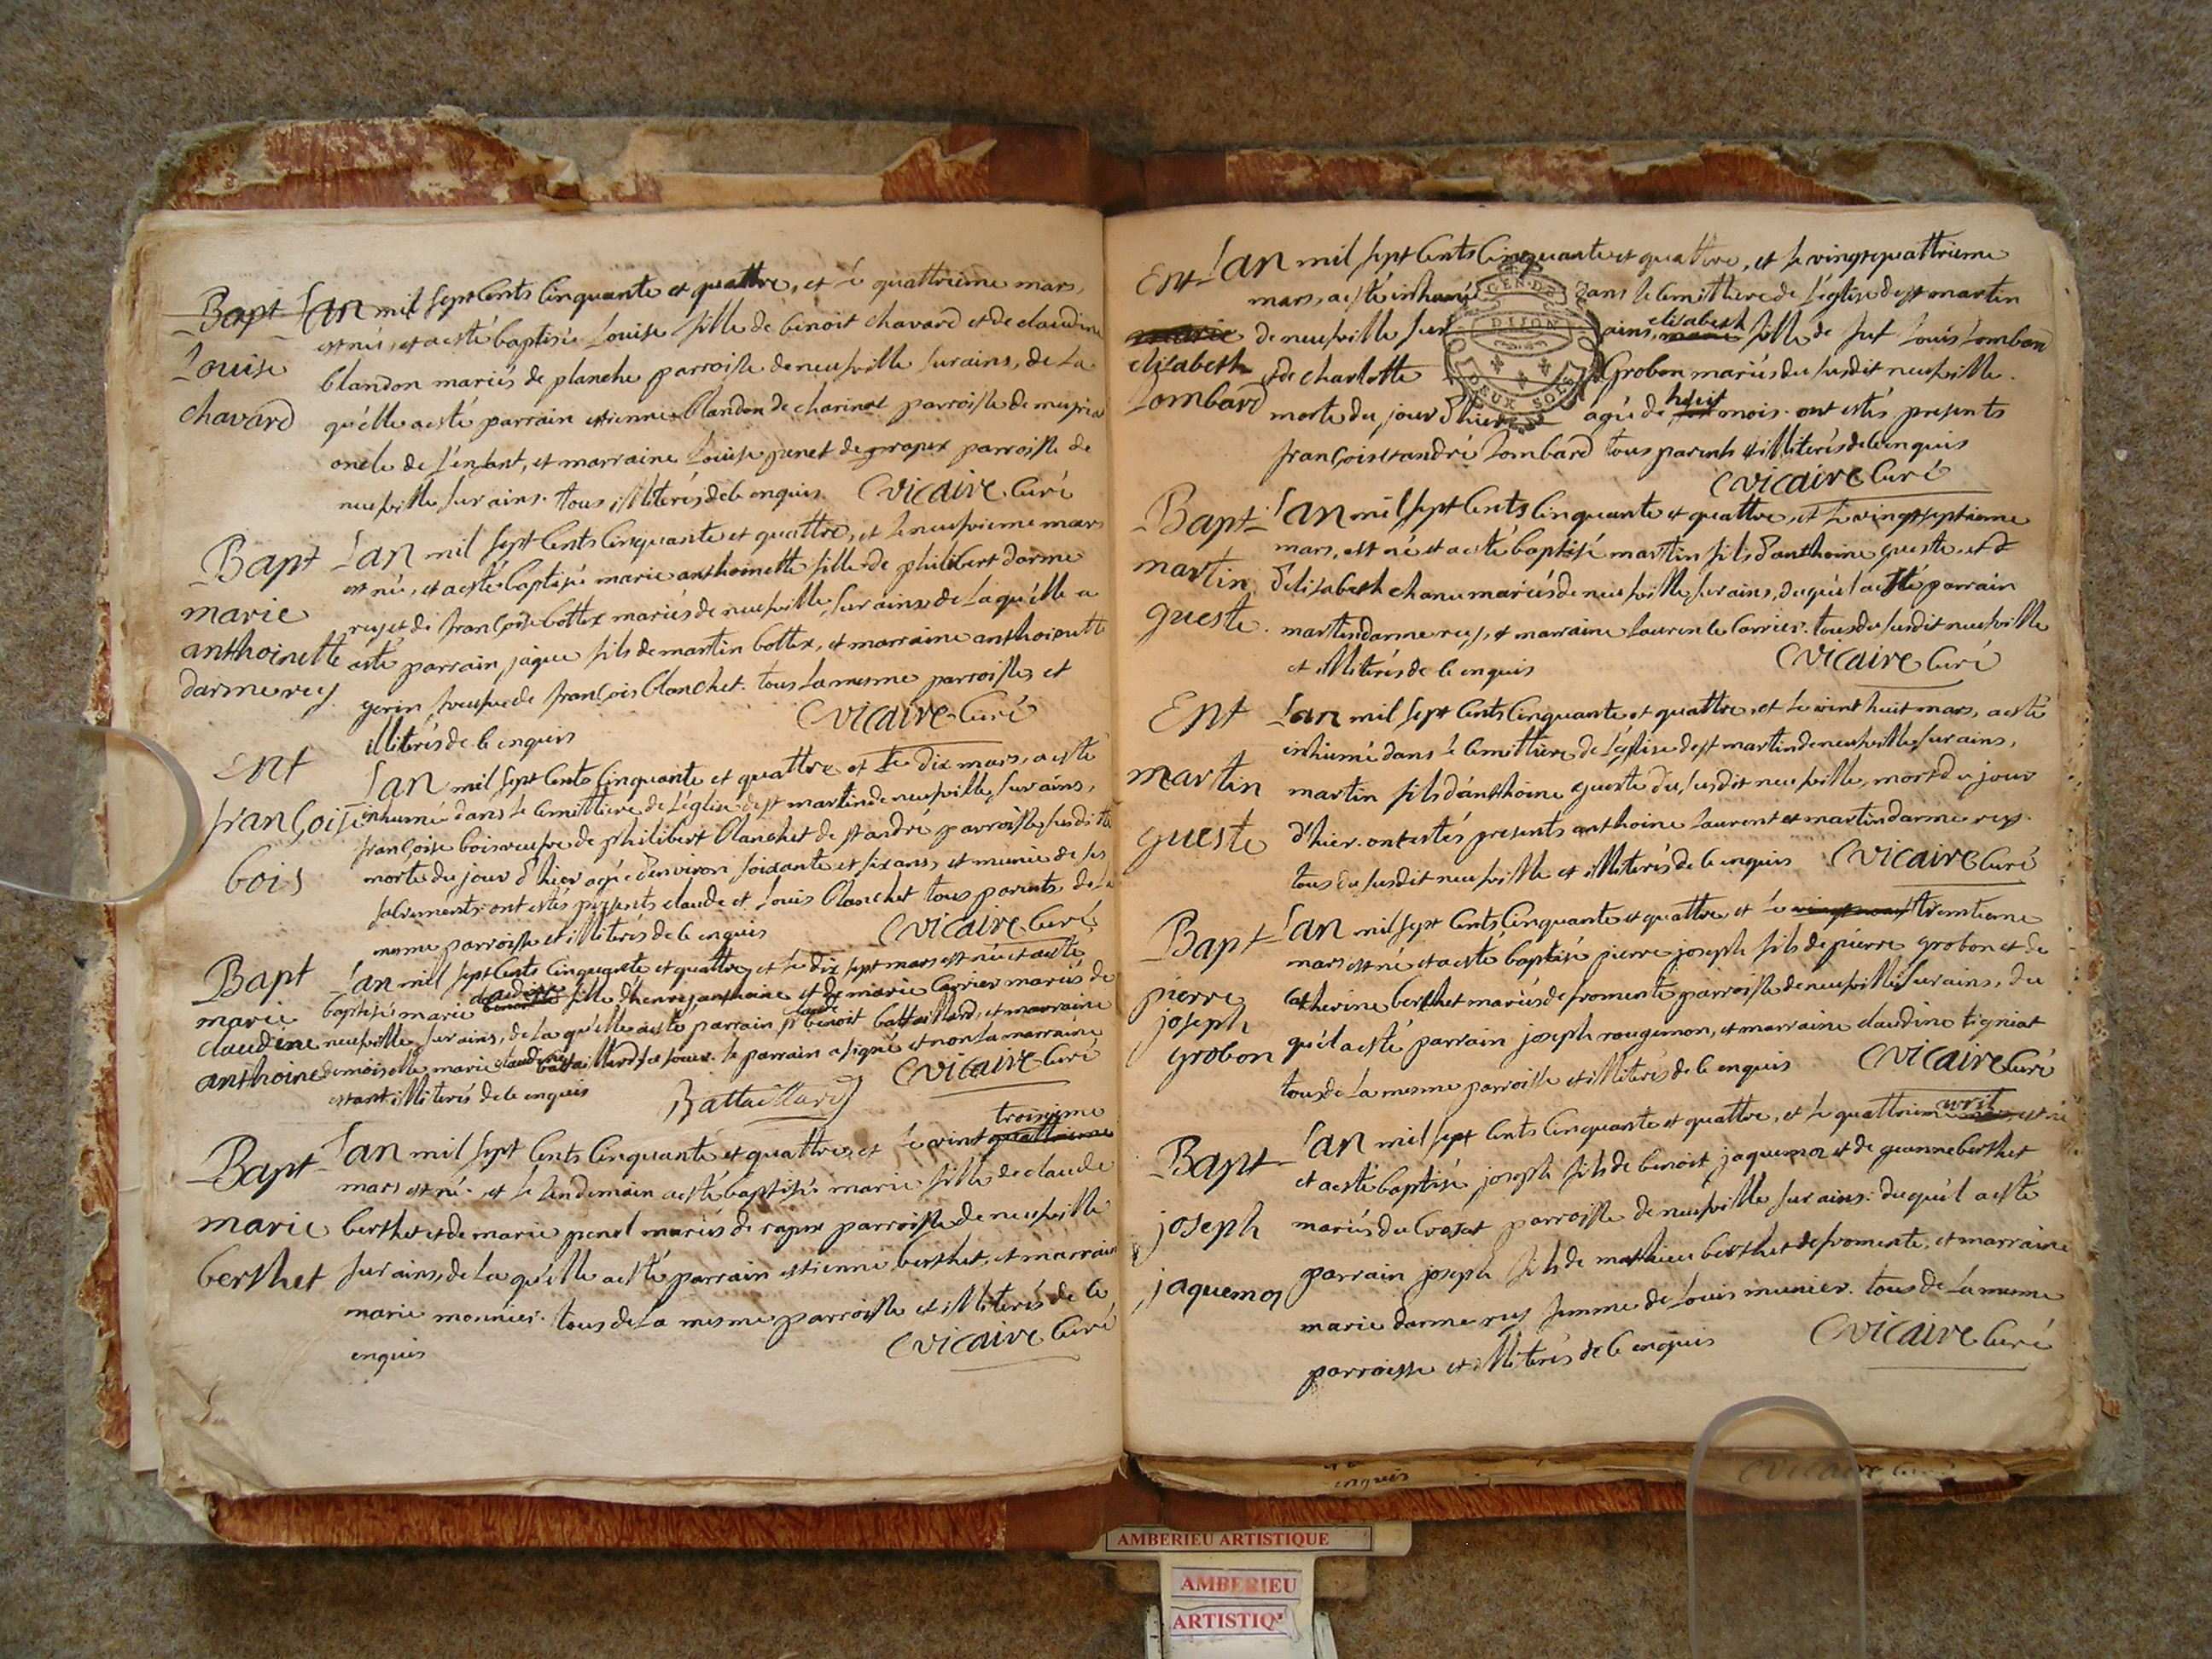 Bapt
Louise
chavard
L'an mil sept cents cinquante et quattre, et le quattrieme mars,
est née, et a esté baptisée Louise fille de benoit chavard et de claudine
blandon mariés de planche parroisse de neufville sur ains, de la
qu'elle a esté parrain estienne blandon de charinat parroisse de
oncle de l'enfant, et marraine Louise penet de parroisse de
neufville sur ains. tous illiterés de ce enquis. Vicaire Curé
Bapt
marie
anthoinette
darmerey
L'an mil sept cents cinquante et quattre, et le neufvieme mars
est née, et a esté baptisée marie anthoinette fille de philibert darme
rey et de françoise bottex mariés de neufville sur ains de laqu'elle a
esté parrain jâque fils de martin bottex, et marraine anthoinette
gerin veufve de françois blanchet. tous la mesme parroisse, et
illiterés de ce enquis
Vicaire Curé
Ent
françoise
bois
L'an mil sept cents cinquante et quattre et le dix mars, a esté
inhumé dans le cemittiere de l'église de st martin de neufville sur ains,
françoise bois veufve de philibert blanchet de st andré parroisse susditte
morte du jour d'hier agée d'environ soixante et six ans, et munie de ses
sacrements. ont estés presents claude et Louis blanchet tous parents de la
mesme parroisse et illiterés de ce enquis
Vicaire Curé
Bapt
marie
claudine
anthoine
L'an mil sept cents cinquante et quattre, et le dix sept mars est née et a esté
baptisé marie claudine fille d'henry anthoine et de marie Carrier mariés de
neufville sur ains, de la qu'elle a esté parrain sr claude benoit battaillard, et marraine
demoiselle marie claudine battaillard sa soeur. le parrain a signé et non la marraine
estant illiterés de ce enquis
Battaillard
Vicaire Curé
Bapt
marie
berthet
troisieme
L'an mil sept cents cinquante et quattre, et le vint quattrieme
mars est né. et le lendemain a esté baptisée marie fille de claude
berthet et de marie penel mariés de rapex parroisse de neufville
sur ains, de la qu'elle a esté parrain estienne berthet, et marraine
marie mounier. tous de la mesme parroisse et illiterés de ce
enquis
Vicaire Curé
Ent
marie
elizabeth
Lombard
L'an mil sept cents cinquante et quattre, et le vingt quattrieme
mars, a esté inhumé dans le cemittiere de l'église de st martin
de neufville sur ains, elizabeth marie fille de sut Louis Lombard
et de charlotte Grobon mariés du susdit neufville.
morte du jour d'hier agée de huit mois. ont estés presents
françois et andré Lombard tous parents et illiterés de ce enquis
Vicaire Curé
GEN DE
DIJON
DEUX SOLS
Bapt
martin
gueste
L'an mil sept cents cinquante et quattre, et le vingt septieme
mars, est né et a esté baptisé martin fils d'anthoine gueste et d
d'elizabeth chanu mariés de neufville sur ains, duqu'el a esté parrain
martin darmerey, et marraine Laurence Carrier. tous du susdit neufville
et illiterés de ce enquis
Vicaire Curé
Ent
martin
gueste
L'an mil sept cents cinquante et quattre, et le vint huit mars, a esté
inhumé dans le cemittiere de l'église de st martin de neufville sur ains,
martin fils d'anthoine gueste du susdit neufville, mort du jour
d'hier. ont estés presents anthoine Laurent et martin darmerey.
tous du susdit neufville et illiterés de ce enquis Vicaire Curé
Bapt
pierre
joseph
grobon
L'an mil sept cents cinquante et quattre et le trentieme
mars est né et a esté baptisé pierre joseph fils de pierre grobon et de
catherine berthet mariés de fromente parroisse de neufville sur ains, du
qu'el a esté parrain joseph rougemon, et marraine claudine tigniat
tous de la mesme parroisse et illiterés de ce enquis
Vicaire Curé
Bapt
joseph
jaquemoz
L'an mil sept cents cinquante et quattre, et le quattrieme avril est né
et a esté baptisé joseph fils de benoit jaquemoz et de jeanne berthet
mariés du Crozat parroisse de neufville sur ains. duqu'el a esté
parrain joseph fils de mathieu berthet de fromente, et marraine
marie darmerey femme de Louis munier. tous de la mesme
parroisse et illiterés de ce enquis
Vicaire Curé
enquis
Vicaire
AMBERIEU ARTISTIQUE
AMBERIEU
ARTISTIQ